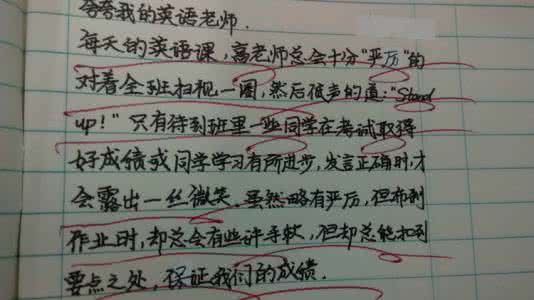 夸夸我的英语老师.
每天的英语课,高老师总会十分"严厉"的
对着全班扫视一圈,然后低声的道:"Stand
up!"只有待到班里一些同学在考试取得
好成绩或同学学习有所进步,发言正确时,才
会露出一丝微笑.虽然略有严厉,但布到
作业时,却总会有些许手软,但却总能把到
要点之处,保证我们的成绩.